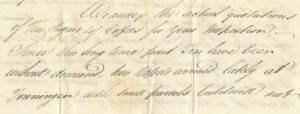 We annex the actual quotations
of Sugars & Coffees for your inspection.
Since this long time past have been
without demand, two Vessels arrived lately at
Tonningen with small parcels